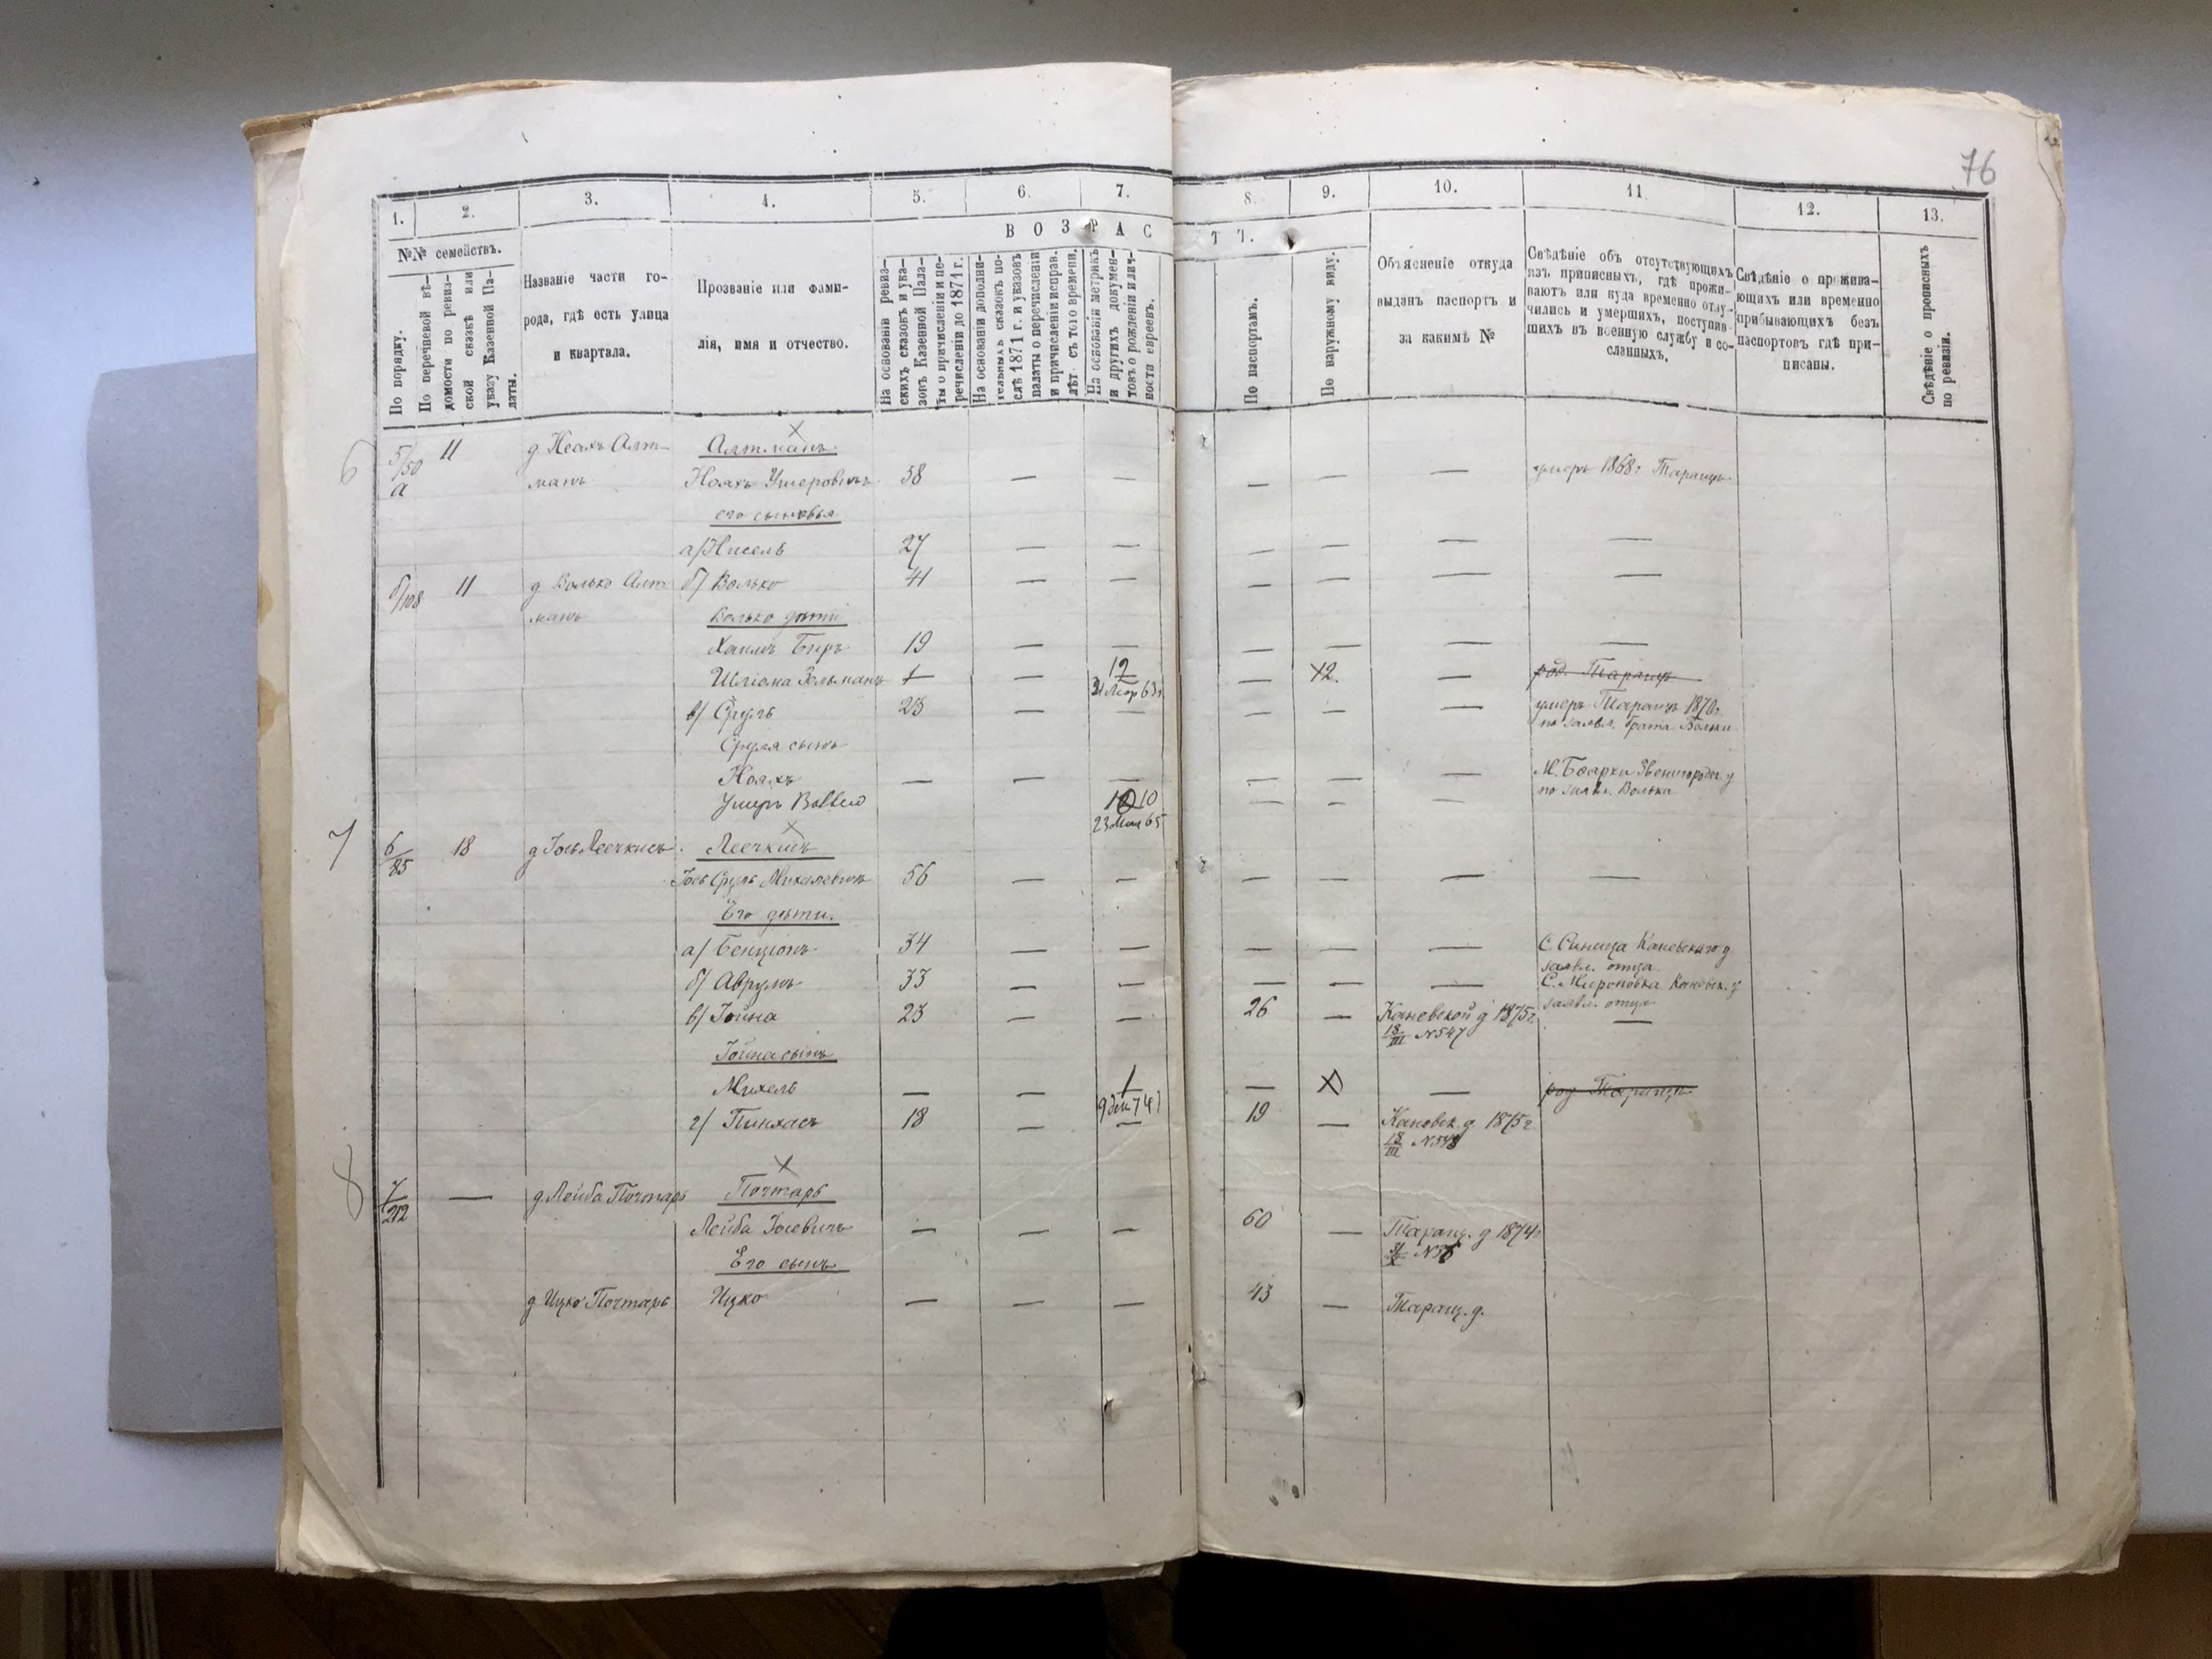 76
1. 2. 3. 4. 5. 6. 7. 8. 9. 10. 11 12. 13.
В О З Р А С Т Ъ.
№№ семействъ.
По порядку.
По перечневой вѣ-
домости по ревиз-
ской сказкѣ или
указу Казенной Па-
латы.
Названіе части го-
рода, гдѣ есть улица
и квартала.
Прозваніе или фами-
лія, имя и отчество.
На основаніи ревиз-
скихъ сказокъ и ука-
зовъ Казенной Пала-
ты о причисленіи и пе-
речисленіи до 1871 г.
На основаніи дополни-
тельныхъ сказокъ по-
слѣ 1871 г. и указовъ
палаты о перечисленіи
и причисленіи исправ.
лѣт съ того времени.
На основаніи метрикъ
и другихъ докумен-
товъ о рожденіи и лич-
ности евреевъ.
По паспортамъ.
По наружному виду.
Объясненіе откуда
выданъ паспортъ и
за какимъ №
Свѣдѣніе объ отсутствующихъ
изъ приписныхъ, гдѣ прожи-
ваютъ или куда временно отлу-
чились и умершихъ, поступив-
шихъ въ военную службу и со-
сланныхъ.
Свѣдѣніе о прожива-
ющихъ или временно
прибывающихъ безъ
паспортовъ гдѣ при-
писаны.
Свѣдѣніе о прописныхъ
по ревизіи.
6 5/50 11 д Неахъ Алт- Алтманъ
а манъ Ноахъ Умеровичъ 58 — — — — — умеръ 1868г Таращѣ
его сыновья
а/ Нисель 27 — — — — — —
б/108 11 д Волько Алт б/ Волько 41 — — — — — —
манъ Волько дѣти
Хаимъ Беръ 19 — — — — — —
Шліома Зельманъ 1 — 12 — 12. — род. Таращѣ
31 Мар 63г
в/ Сруль 23 — — — — — умеръ Таращѣ 1870г
по заявл. брата Вольки
Сруля сынъ
Ноахъ — — — — — — М. Боярки Звенигородск у
по заявл. Вольки
Умеръ 10 — — —
23 65
7 6/85 18 д Іось Леечкисъ Леечкисъ
Іось Сруль Михелевичъ 56 — — — — — —
Его дѣти.
а/ Бенціонъ 34 — — — — — С. Синица Каневскаго у
заявл. отца
б/ Аврумъ 33 — — — — — С. Мироновка Каневск. у
заявл. отца
в/ Іойна 23 — — 26 — Каневской д 1875г —
18/III №547
Іойна сынъ
Михель — — 1 — — род Таращѣ
9 74г
г/ Пинхасъ 18 — — 19 — Каневск. д 1875г
18/III
8 7/212 — д. Лейба Почтарь Почтарь
Лейба Іосевичъ — — — 60 — Таращ. д 1874г
Его сынъ
д Ицко Почтарь Ицко — — — 43 — Таращ. д.